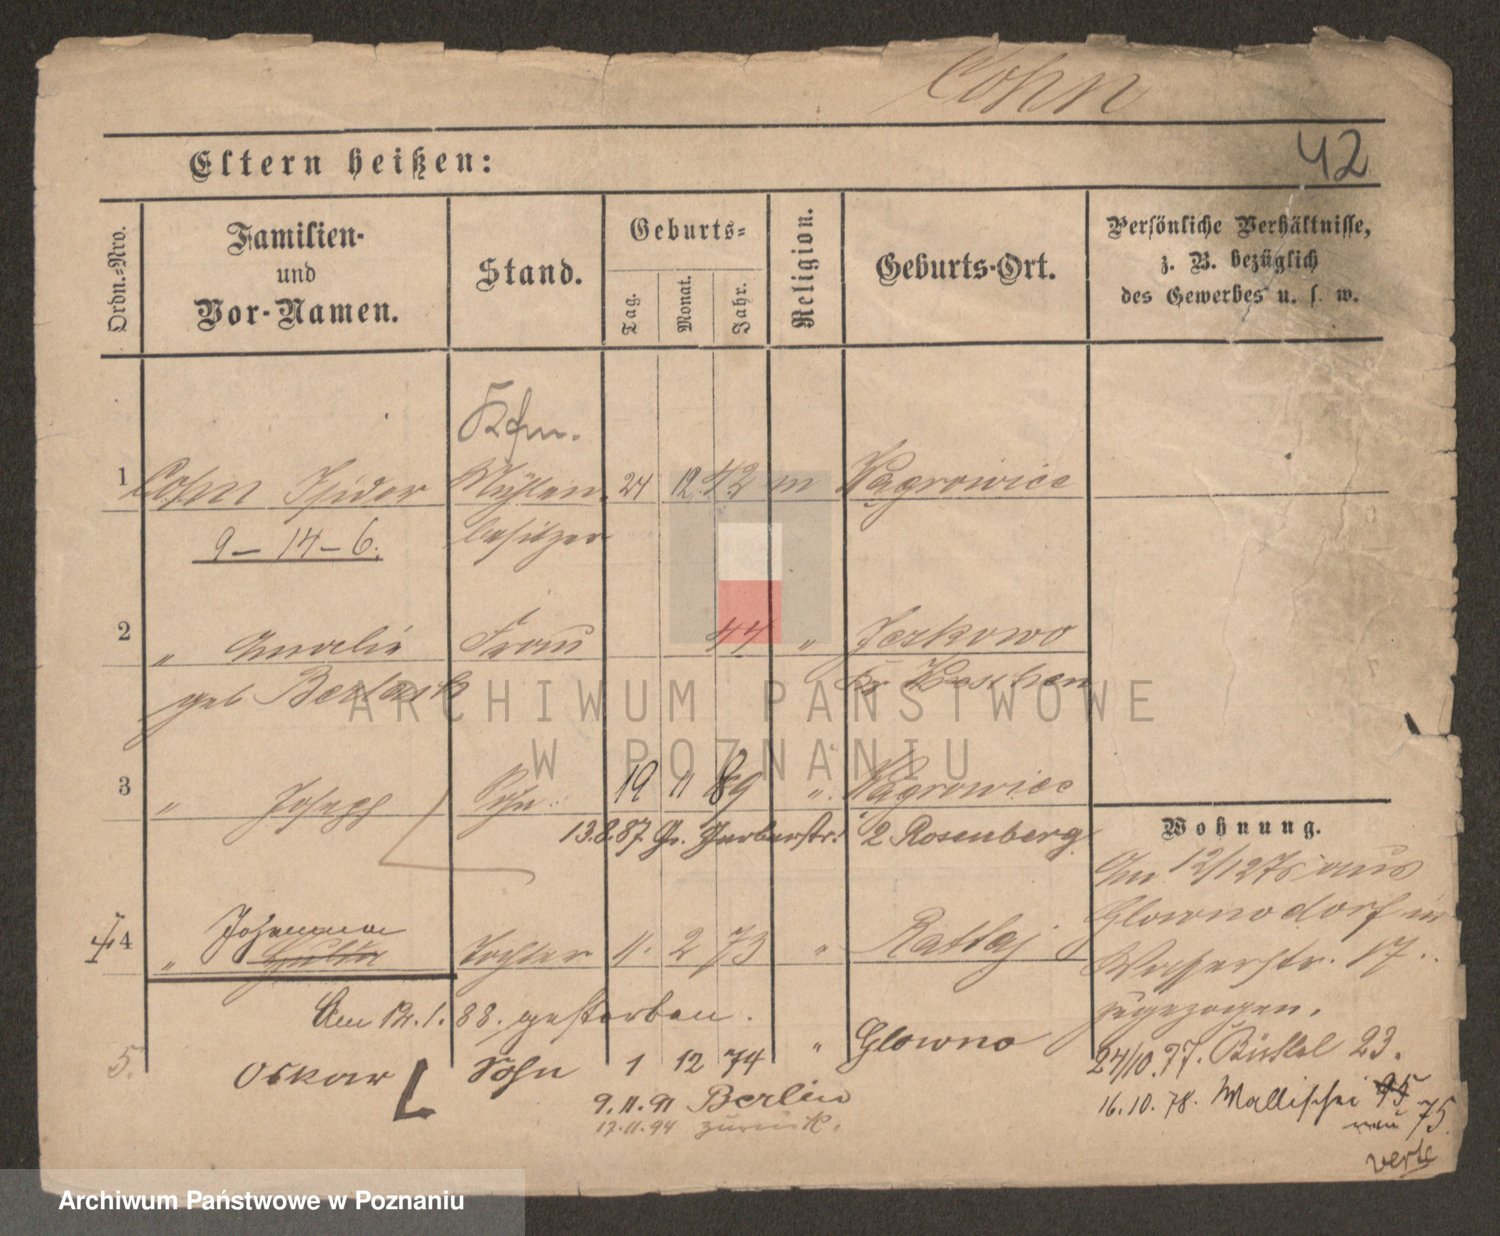 Cohn
42
Eltern heißen:
Ordn.-Nro.
Familien- und Vor-Namen.
Stand.
Geburts-
Tag.
Monat.
Jahr.
Religion.
Geburts-Ort.
Persönliche Verhältnisse, z. B. bezüglich des Gewerbes u. s. w.
Kfm.
1 Cohn Isidor Mühlen- 24 12 42 m Wągrowiec
9 – 14 – 6. besitzer
2 " Amalie Frau 44 " Jerkowo
geb Kr Kosten
3 " Joseph Sohn 19 11 69 " Wągrowiec
13.8.87. Gr. Gerberstr. 2 Rosenberg
Wohnung.
Am 12/12 75 aus
Glownodorf in
Wasserstr. 17
zugezogen.
24/10.77. Büttel 23.
16.10.78. Wallischei 95
neu 75
verte
Johanna
4 " Hulda Tochter 11. 2 73 " Rattaj
Am 12.1.88. gestorben.
5. Oskar Sohn 1 12 74 " Glowno
9.11.91 Berlin
17.11.94 zurück.
ARCHIWUM PAŃSTWOWE
W POZNANIU
Archiwum Państwowe w Poznaniu